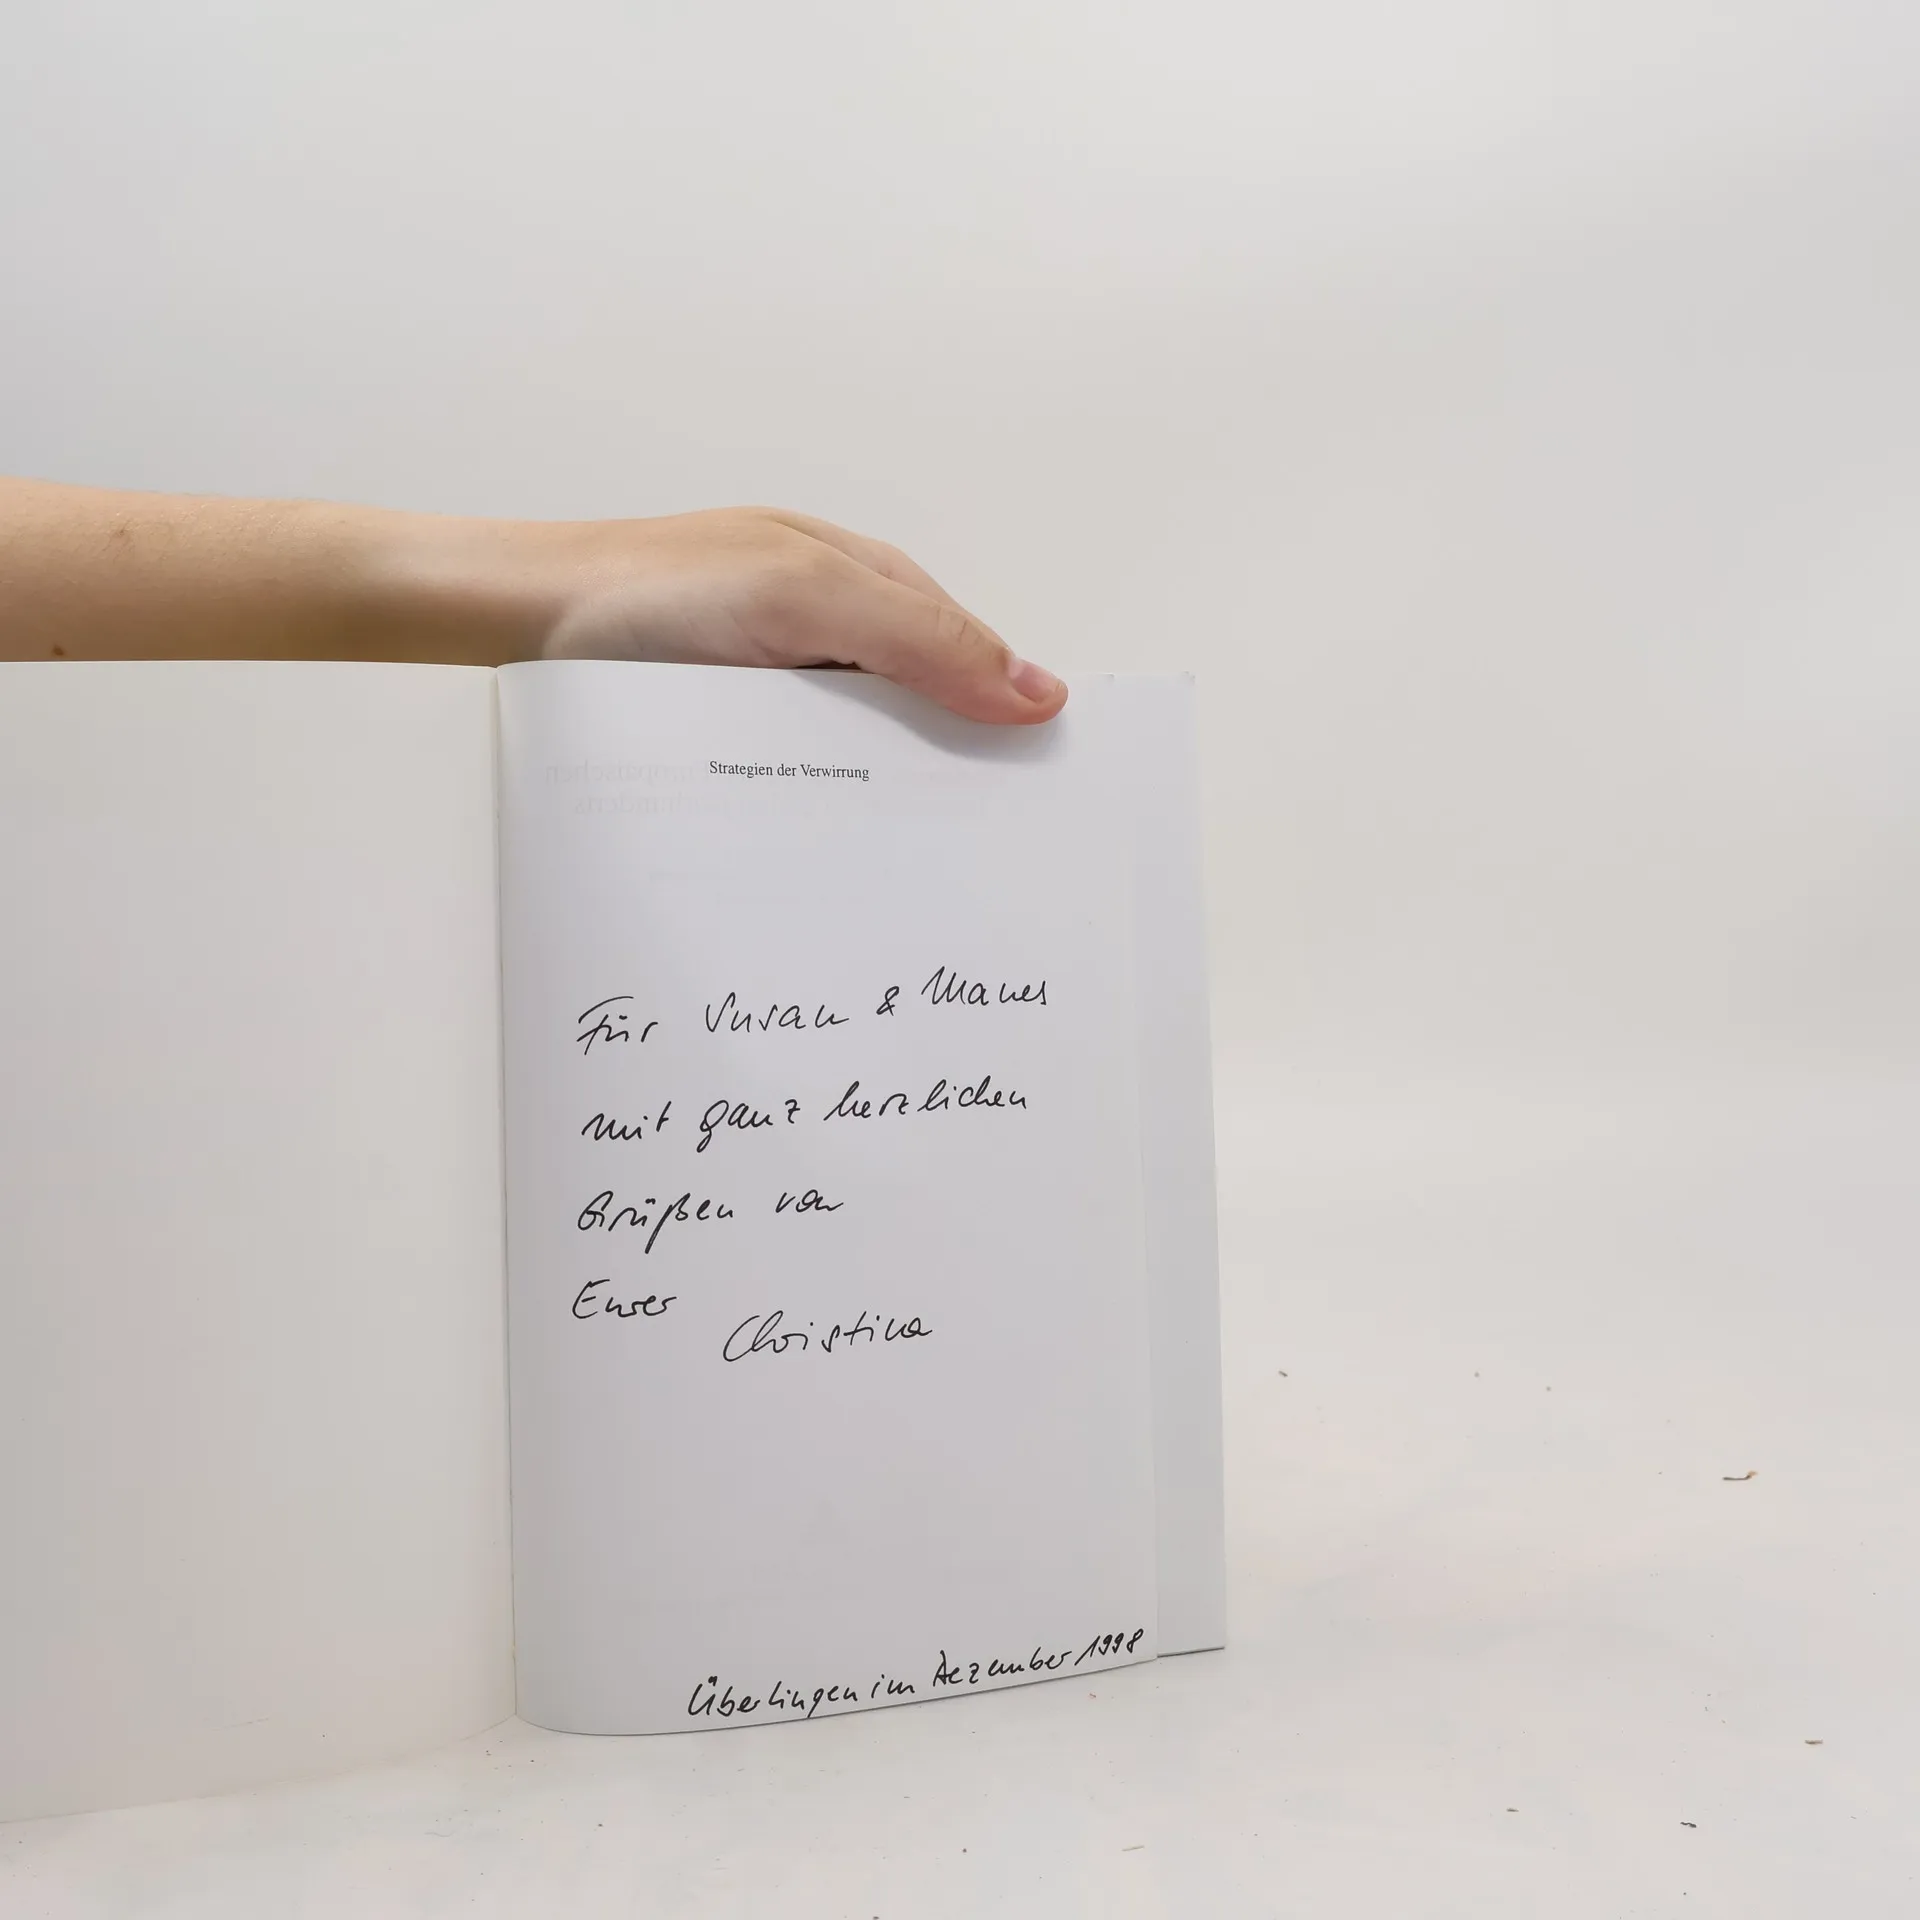 Strategien der Verwirrung
Für Susan & Manes
mit ganz herzlichen
Grüßen von
Eurer
Christina
Überlingen im Dezember 1998